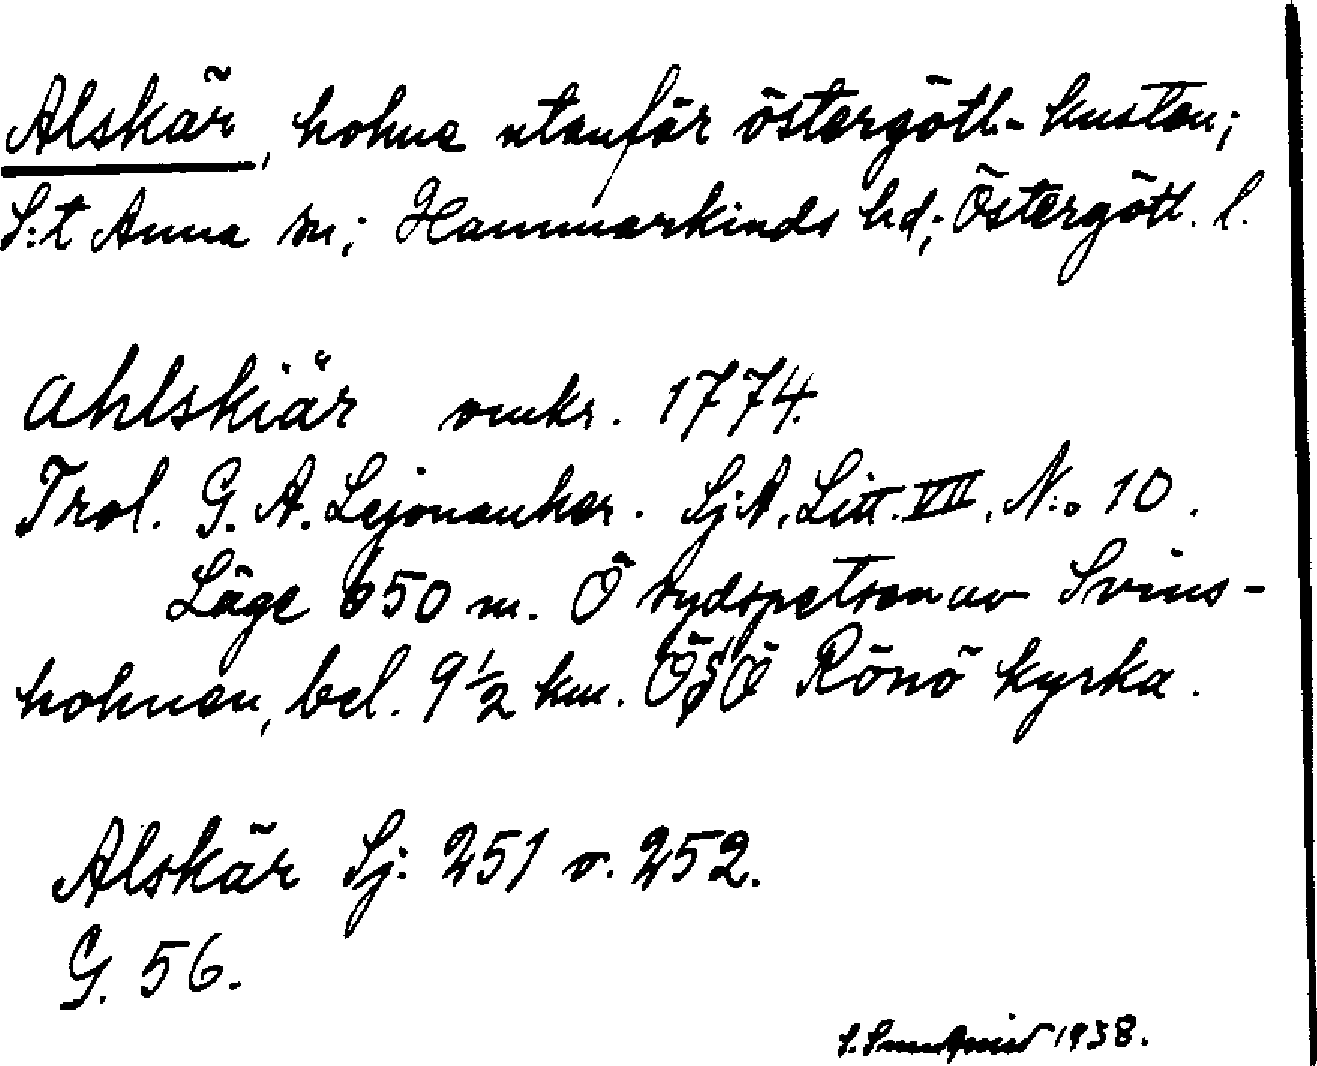 Alskär, holme utanför östergötl. kusten;
S:t Anna sn; Hammarkinds hd; Östergötl. l.
Ahlskiär omkr. 1774.
Trol. G. A. Lejonanker. Sj:A, Litt. VII, N:o 10.
Läge 650 m. Ö sydspetsen av Svins-
holmen, bel. 9½ km. ÖSÖ Rönö kyrka.
Alskär Sj: 251 o. 252.
G. 56.
1938.